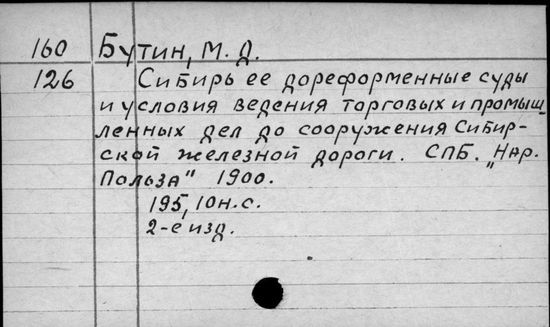 160 Бутин, М. Д.
126 Сибирь ее дореформенные суды
и условия ведения торговых и промыш-
ленных дел до сооружения Сибир-
ской железной дороги. СПБ. „Нар.
Польза" 1900.
195, 10 н. с.
2-е изд.